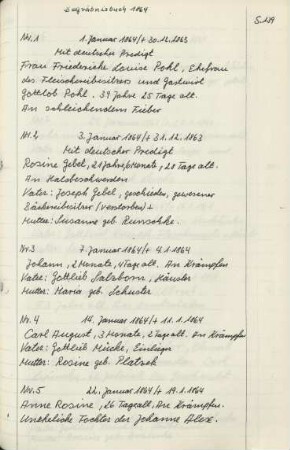 Begräbnisbuch 1864
S. 129
Nr. 1 1. Januar 1864/+ 30.12.1863
Mit deutscher Predigt
Frau Friedericke Louise Pohl, Ehefrau
des Fleischereibesitzers und Gastwirt
Gottlob Pohl. 39 Jahre 25 Tage alt.
An schleichendem Fieber
Nr. 2 3. Januar 1864/+ 31.12.1863
Mit deutscher Predigt
Rosine Gebel, 21 Jahre, Monate, 20 Tage alt.
An Halsbeschwerden
Vater: Joseph Gebel, geschieden, gewesener
Bäckereibesitzer /verstorben/ +
Mutter: Susanne geb. Runschke.
Nr. 3 7. Januar 1864/+ 4.1.1864
Johann, 2 Monate, 4 Tage alt. An Krämpfen
Vater: Gottlieb Salzborn, Häusler
Mutter: Maria geb. Schuster
Nr. 4 14. Januar 1864/+ 11.1.1864
Carl August, 3 Monate, 2 Tage alt. An Krämpfen
Vater: Gottlieb Mücke, Einlieger
Mutter: Rosine geb. Platzek
Nr. 5 22. Januar 1864/+ 19.1.1864
Anne Rosine, 26 Tage alt. An Krämpfen.
Uneheliche Tochter der Johanne Alex.